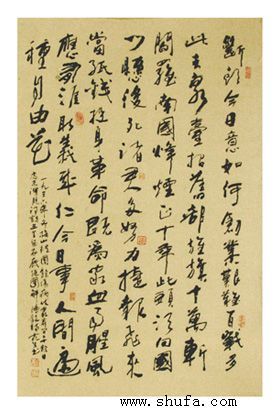 斷頭今日意如何創業艱難百戰多
此去泉臺招舊部旌旗十萬斬
閻羅南國烽煙正十年此頭須向國
門懸後死諸君多努力捷報飛來
當紙錢投身革命即為家血雨腥風
應有涯取義成仁今日事人間遍
種自由花
一九三六年冬梅山被圍
www.shufa.com